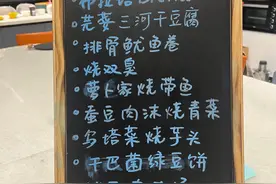 芫荽三河干豆腐
排骨鱿鱼卷
烧双臭
萝卜家烧带鱼
蚕豆肉沫烧青菜
乌塔菜烧芋头
干巴菌绿豆饼